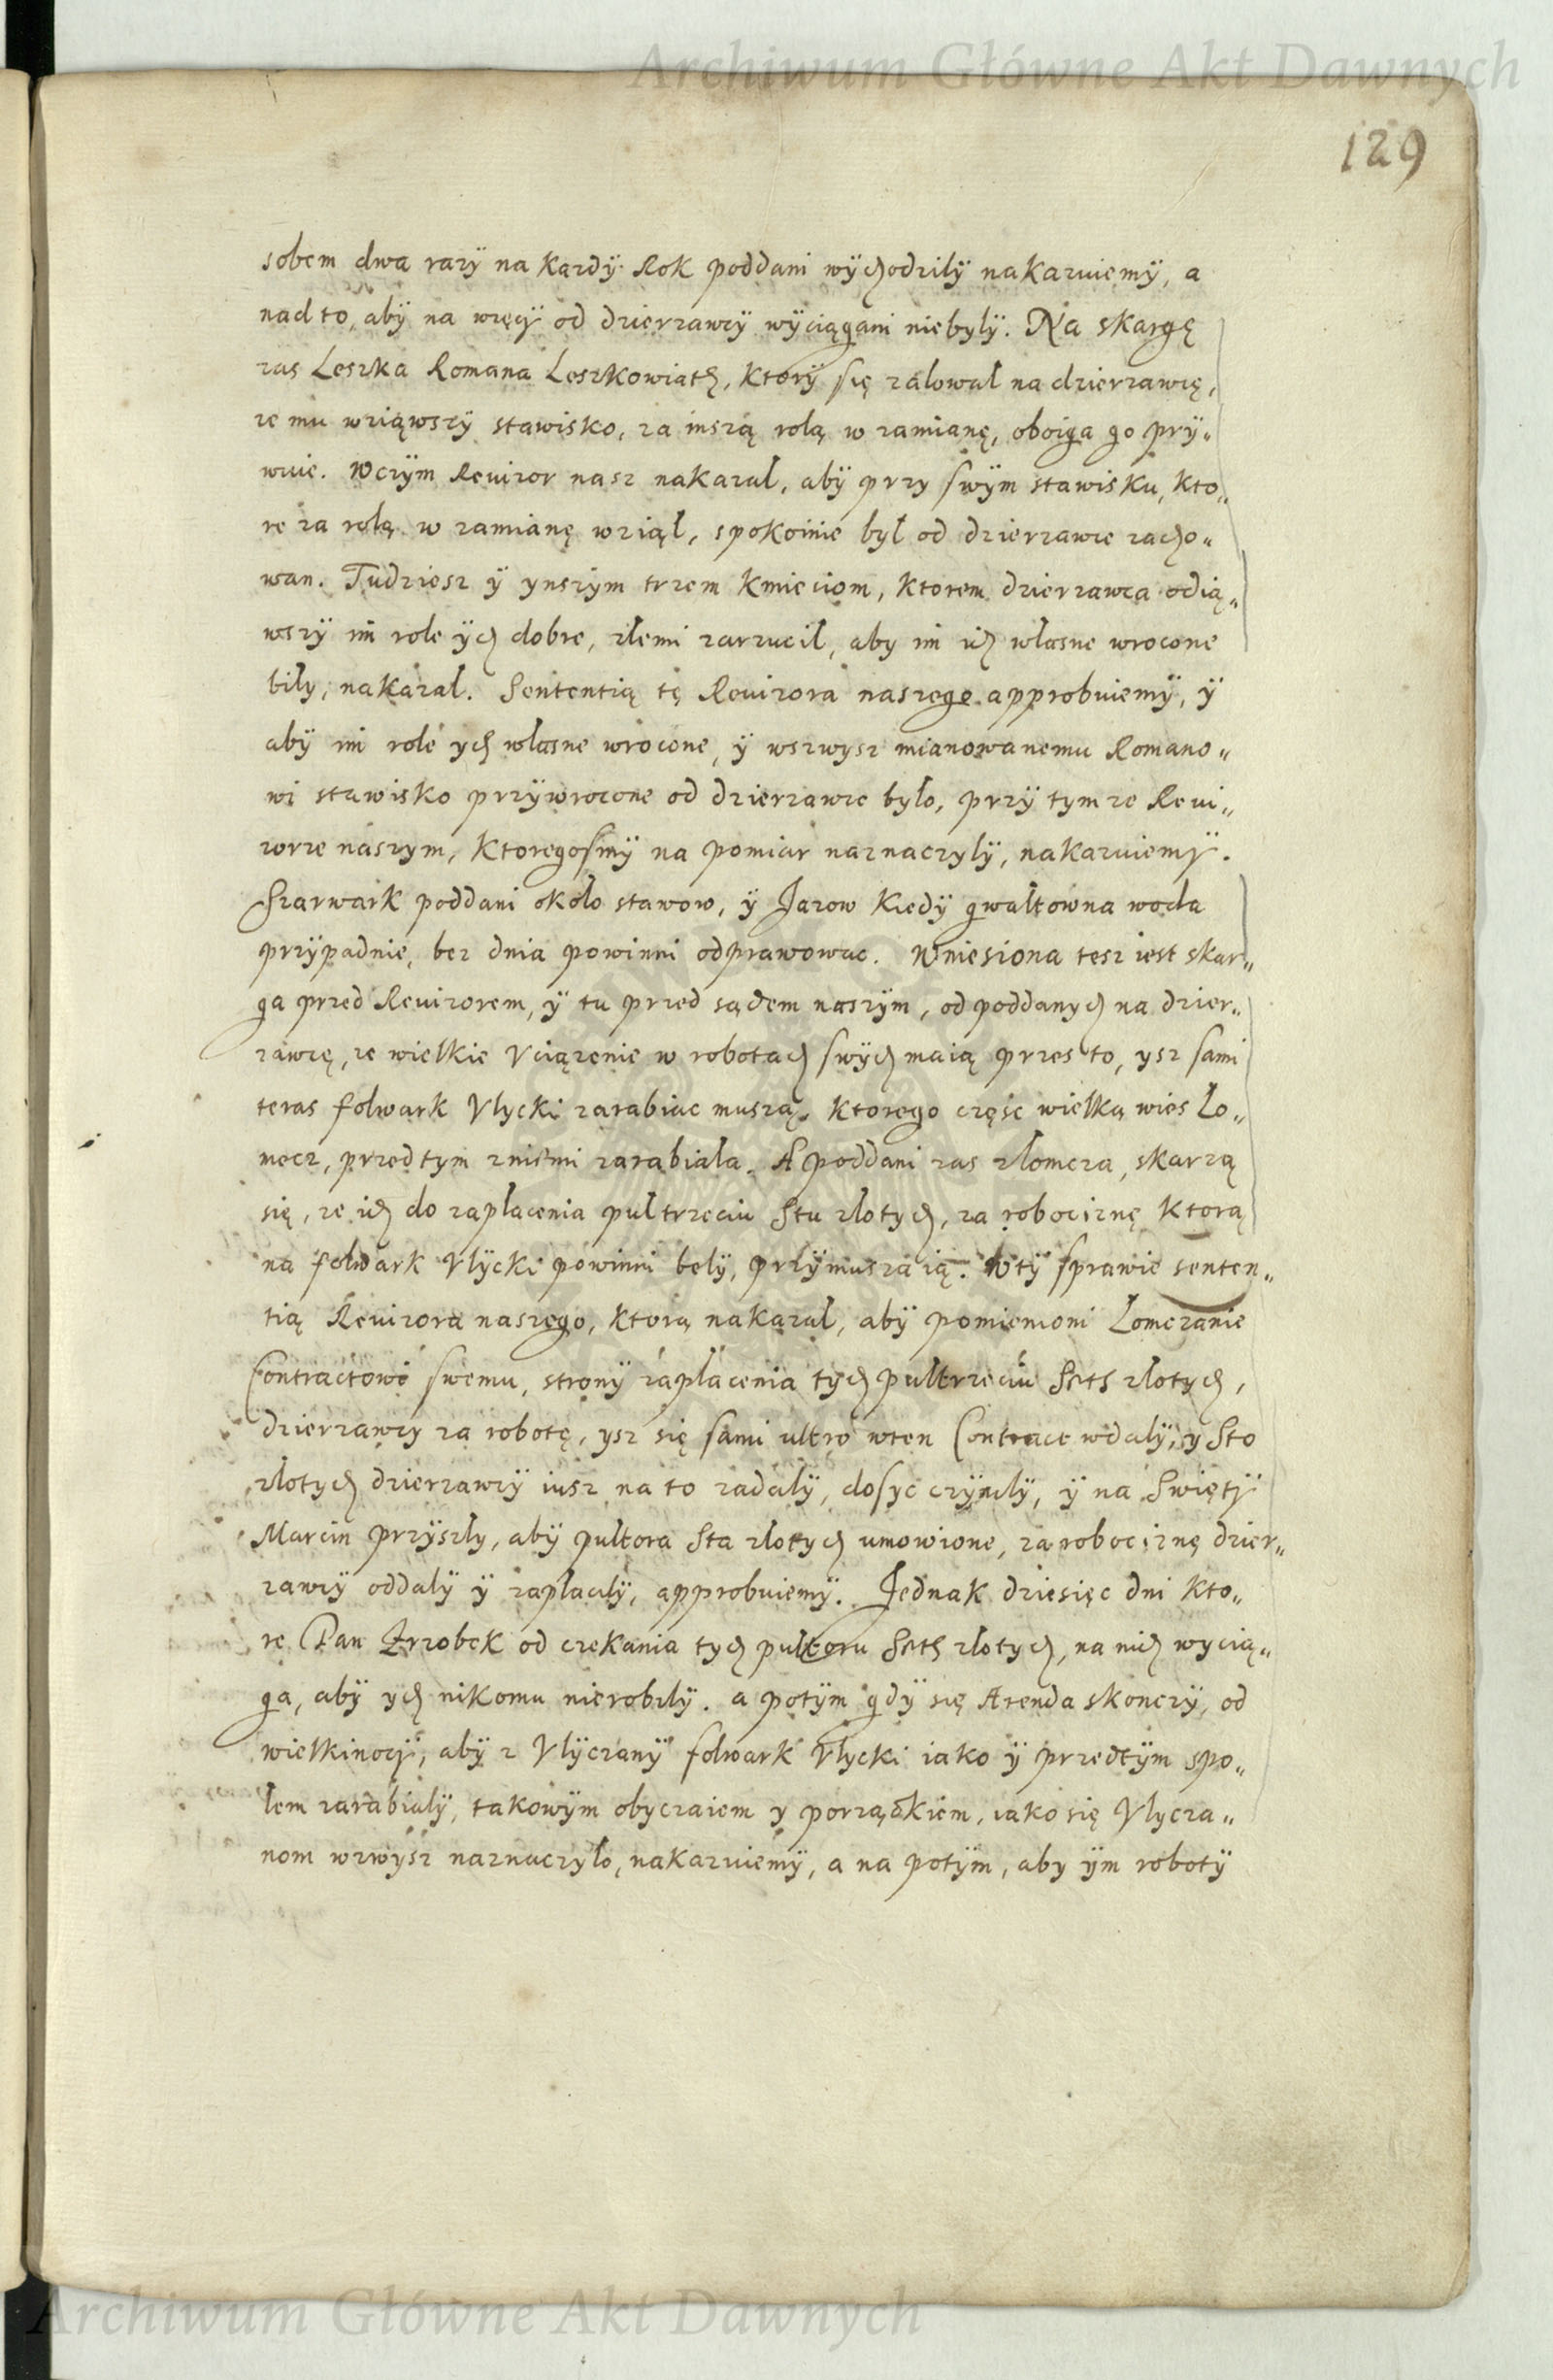 Archiwum Główne Akt Dawnych
129
sobem dwa razÿ na kazdÿ Rok poddani wÿchodzilÿ nakazuiemÿ, a
nad to, abÿ na więcÿ od dzierzawcÿ wÿciągani niebÿlÿ. Na skargę
zas Leszka Romana Leszkowiats, ktorÿ się załował na dzierzawcę,
ze mu wziąwszÿ stawisko, za inszą rolą w zamianę, oboiga go prÿ„
wuie. Wczÿm Reuizor nasz nakazał, abÿ przy swÿm stawisku, kto„
re za rolą w zamianę wziął, spokoinie był od dzierzawce zacho„
wan. Tudziesz ÿ ynszÿm trzem kmieciom, ktorem dzierzawca odią„
wszÿ im role ÿch dobre, złemi zarzucił, aby im ich własne wrocone
biły, nakazał. Sententią tę Reuizora naszego approbuiemÿ, ÿ
abÿ im role ych własne wrocone, ÿ wszwysz mianowanemu Romano„
wi stawisko przÿwrocone od dzierzawce było, przÿ tym ze Reui„
zorze naszym, ktoregosmÿ na pomiar naznaczylÿ, nakazuiemÿ.
Szarwark poddani około stawow, ÿ Jazow kiedÿ gwałtowna woda
przÿpadnie, bez dnia powinni odprawowac. Wniesiona tesz iest skar„
ga przed Reuizorem, ÿ tu przed sądem naszÿm, od poddanych na dzier„
zawcę, ze wielkie Vciązenie w robotach swÿch maią przes to, ysz sami
teras folwark Vlycki zarabiac muszą, ktorego częsc wielką wies Ło„
mecz, przed tym z niemi zarabiała. A poddani zas złomcza, skarzą
się, ze ich do zapłacenia pułtrzeciu Stu złotych, za robociznę ktorą
na folwark Vlÿcki powinni belÿ, przÿmuszaią. W tÿ sprawie senten„
tią Reuizora naszego, ktorą nakazał, abÿ pomienioni Łomczanie
Contractowi swemu, stronÿ zapłacenia tÿch pułtrzeciu Sets złotych,
dzierzawcy za robotę, ysz się sami ultro wten Contract wdalÿ, y Sto
złotych dzierzawcÿ iusz na to zadalÿ, dosyc czÿnilÿ, ÿ na Swiętÿ
Marcin przÿszły, abÿ pułtora Sta złotych umowione, za robociznę dzier„
zawcÿ oddalÿ ÿ zapłacilÿ, approbuiemÿ. Jednak dziesięc dni kto„
re Pan Zrzobek od czekania tych pułtoru Sets złotych, na nich wycią„
ga, abÿ ych nikomu nierobilÿ. a potÿm gdÿ się Arenda skonczÿ, od
wielkinocÿ, abÿ z Vlÿczanÿ folwark Vlycki iako ÿ przedtÿm spo„
łem zarabialÿ, takowÿm obyczaiem y porządkiem, iako się Vlycza„
nom wzwÿsz naznaczyło, nakazuiemÿ, a na potÿm, aby ÿm robotÿ
Archiwum Główne Akt Dawnych